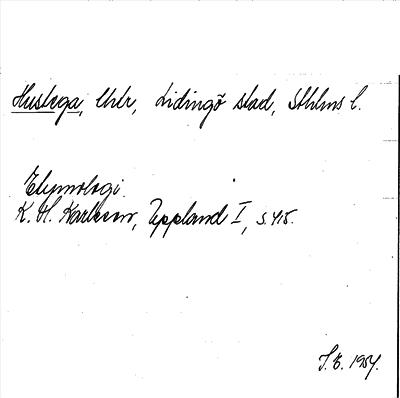 Hustega, Uhr, Lidingö stad, Sthlms l.
Etymologi.
K. H. Karlsson, Uppland I, s. 415.
S. E. 1954.